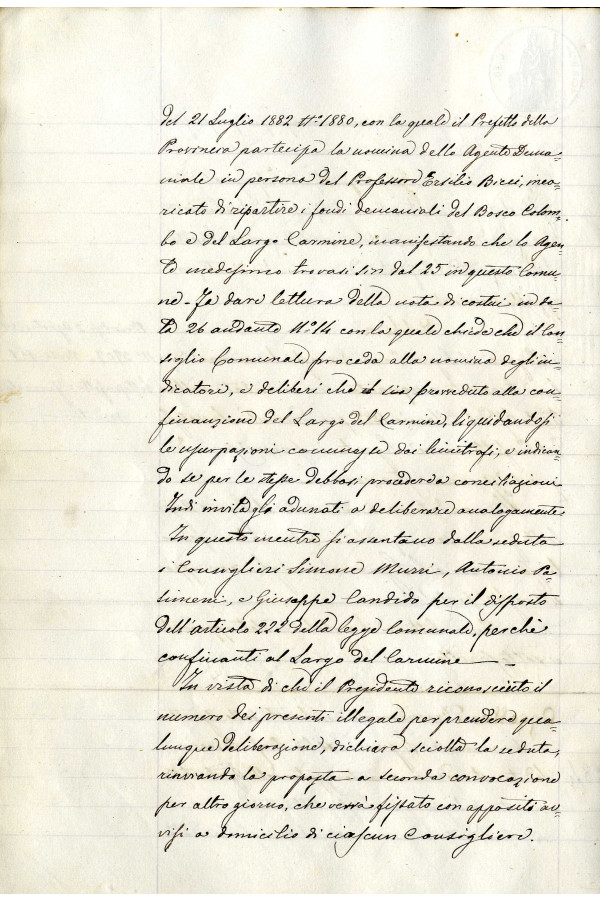 del 21 Luglio 1882 N.º 1880, con la quale il Prefetto della
Provincia partecipa la nomina dello Agente Dema-
niale in persona del Professore Ersilio Bicci, inca-
ricato di ripartire i fondi demaniali del Bosco Colom-
bo e del Largo Carmine, manifestando che lo Agen-
te medesimo trovasi sin dal 25 in questo Comu-
ne - Fa dare lettura della nota di costui in da-
ta 26 andante N.º 14 con la quale chiede che il Con-
siglio Comunale proceda alla nomina degli in-
dicatori, e deliberi che sia provveduto alla con-
finazione del Largo del Carmine, liquidandosi
le usurpazioni commesse dai limitrofi, e indican-
do se per le stesse debbasi procedere a conciliazioni
Indi invita gli adunati a deliberare analogamente.
In questo mentre si assentano dalla seduta
i Consiglieri Simone Murri, Antonio Pa-
simeni, e Giuseppe Candido per il disposto
dell'articolo 222 della legge Comunale, perchè
confinanti al Largo del Carmine —
In vista di che il Presidente riconosciuto il
numero dei presenti illegale per prendere qua-
lunque deliberazione, dichiara sciolta la seduta,
rinviando la proposta a seconda convocazione
per altro giorno, che verrà fissato con appositi av-
visi a domicilio di ciascun Consigliere.